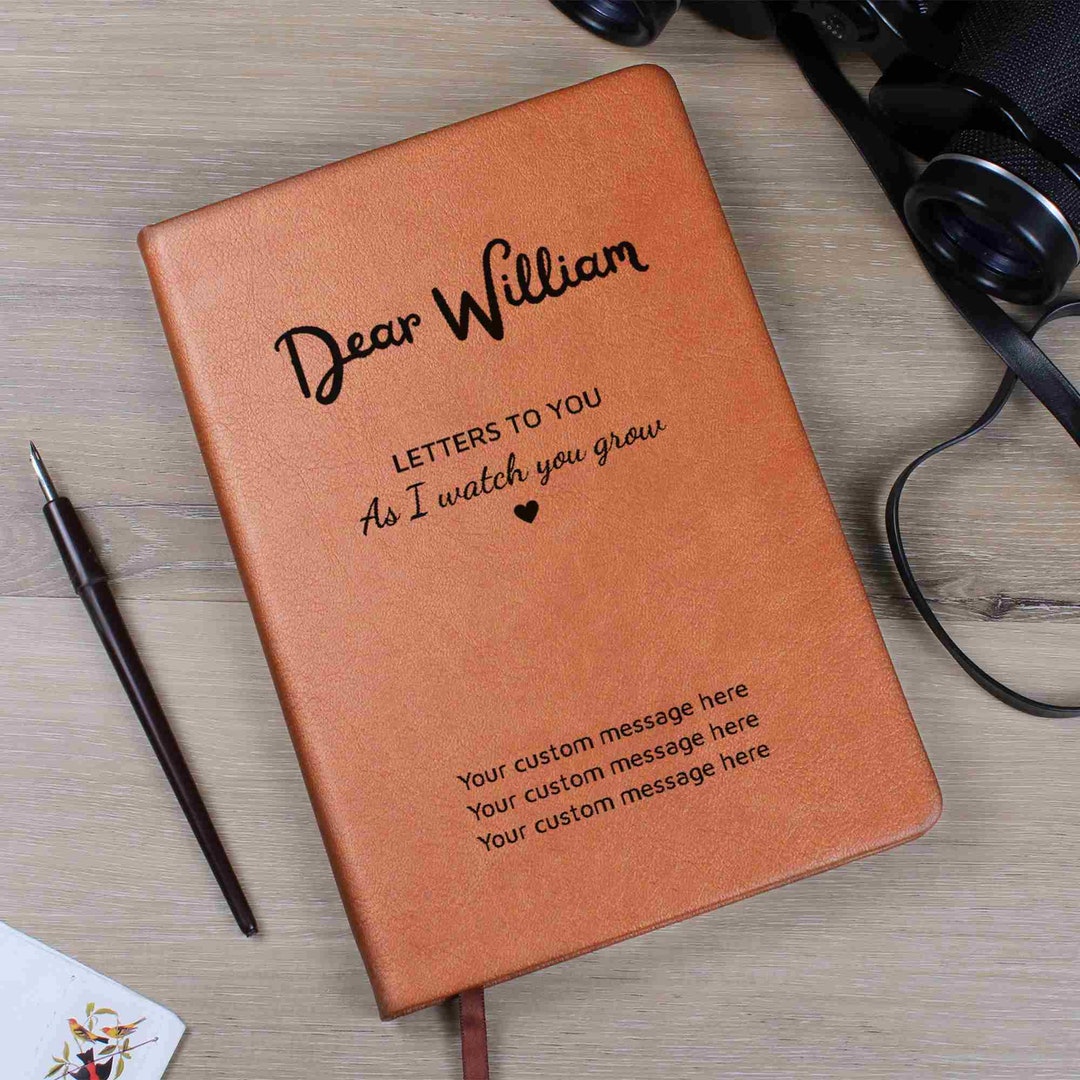 Dear William
LETTERS TO YOU
As I watch you grow
Your custom message here
Your custom message here
Your custom message here